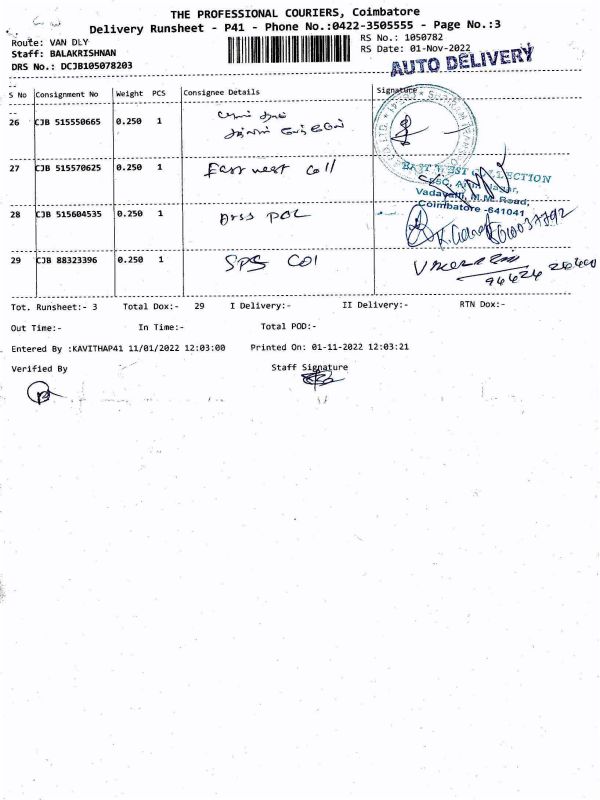 THE PROFESSIONAL COURIERS, Coimbatore
Delivery Runsheet - P41 - Phone No.:0422-3505555 - Page No.:3
Route: VAN DLY
RS No.: 1050782
Staff: BALAKRISHNAN
RS Date: 01-Nov-2022
DRS No.: DCJB105078203
AUTO DELIVERY
S No Consignment No Weight PCS Consignee Details Signature
26 CJB 515550665 0.250 1
27 CJB 515570625 0.250 1 East west Coll
EAST WEST COLLECTION
Vadavalli, M.M. Road,
Coimbatore -641041
28 CJB 515604535 0.250 1
29 CJB 88323396 0.250 1 SPS COl
Tot. Runsheet:- 3 Total Dox:- 29 I Delivery:- II Delivery:- RTN Dox:-
Out Time:- In Time:- Total POD:-
Entered By :KAVITHAP41 11/01/2022 12:03:00 Printed On: 01-11-2022 12:03:21
Verified By Staff Signature